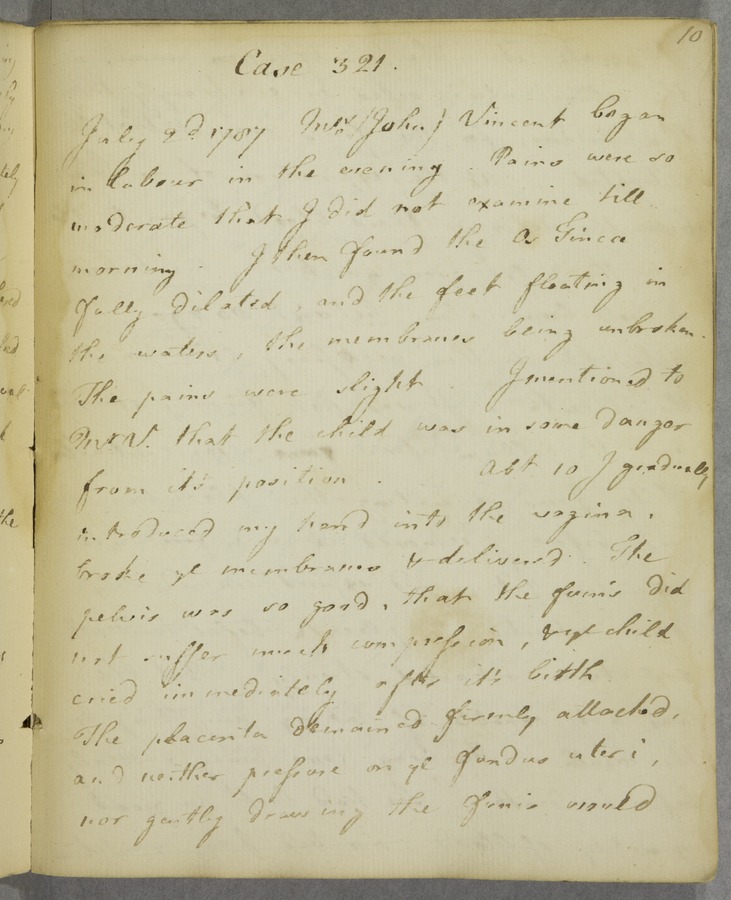 10
Case 321.
July 9d 1787 Mrs (John) Vincent began
in labour in the evening. Pains were so
moderate that I did not examine till
morning. I then found the Os Tincæ
fully dilated, and the feet floating in
the waters, the membranes being unbroken.
The pains were slight. I mentioned to
Mr V. that the child was in some danger
from it's position. Abt 10 I gradually
introduced my hand into the vagina,
broke ye membranes & deliverd. The
pelvis was so good, that the funis did
not suffer much compression, & ye child
cried immediately after it's birth.
The placenta remained firmly attached,
and neither pressure on ye fundus uteri,
nor gently drawing the funis would